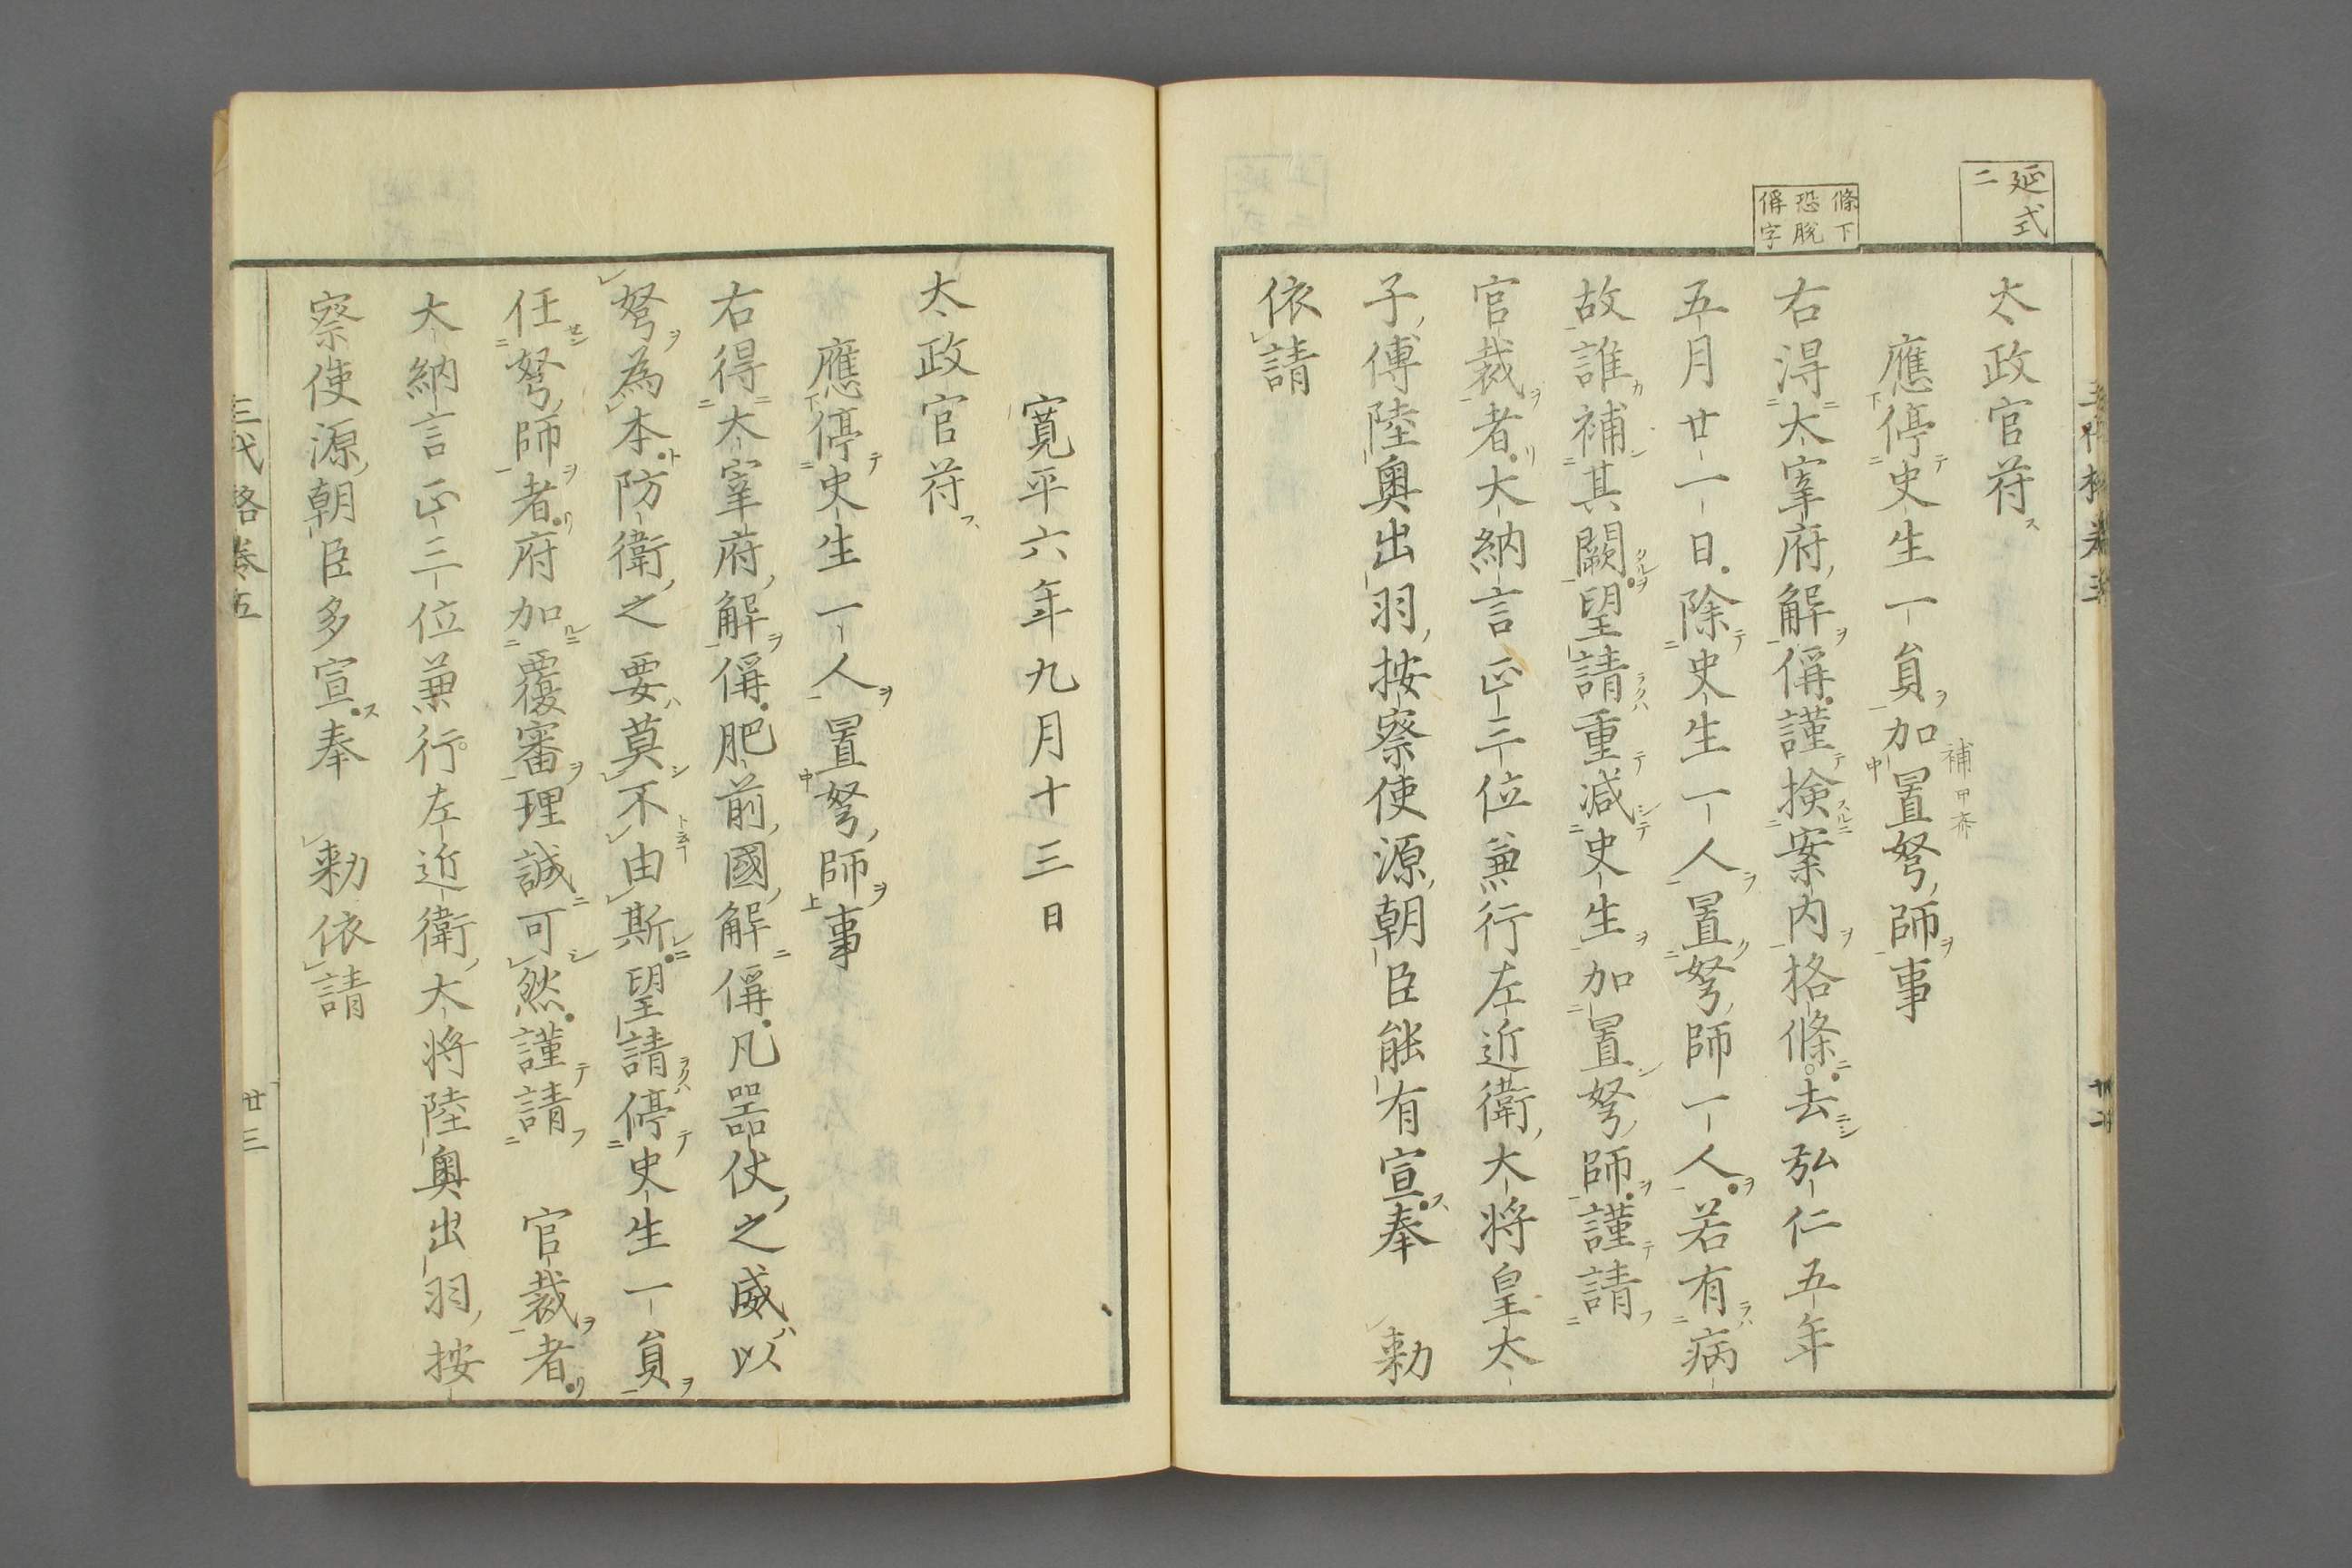 延式
二
條下
恐脱
偁字
太政官符
應停史生一員加置弩師事
補
右得大宰府解偁謹検案内格條去弘仁五年
五月廿一日除史生一人置弩師一人若有病
故誰補其闕望請重減史生加置弩師謹請
官裁者大納言正三位兼行左近衛大将皇太
子傅陸奥出羽按察使源朝臣能有宣奉　勅
依請
寛平六年九月十三日
太政官符
應停史生一人置弩師事
右得大宰府解偁肥前國解偁凡器仗之威以
弩為本防衛之要莫不由斯望請停史生一員
任弩師者府加覆審理誠可然謹請　官裁者
大納言正三位兼行左近衛大将陸奥出羽按
察使源朝臣多宣奉　勅依請
三代格巻五
廿三